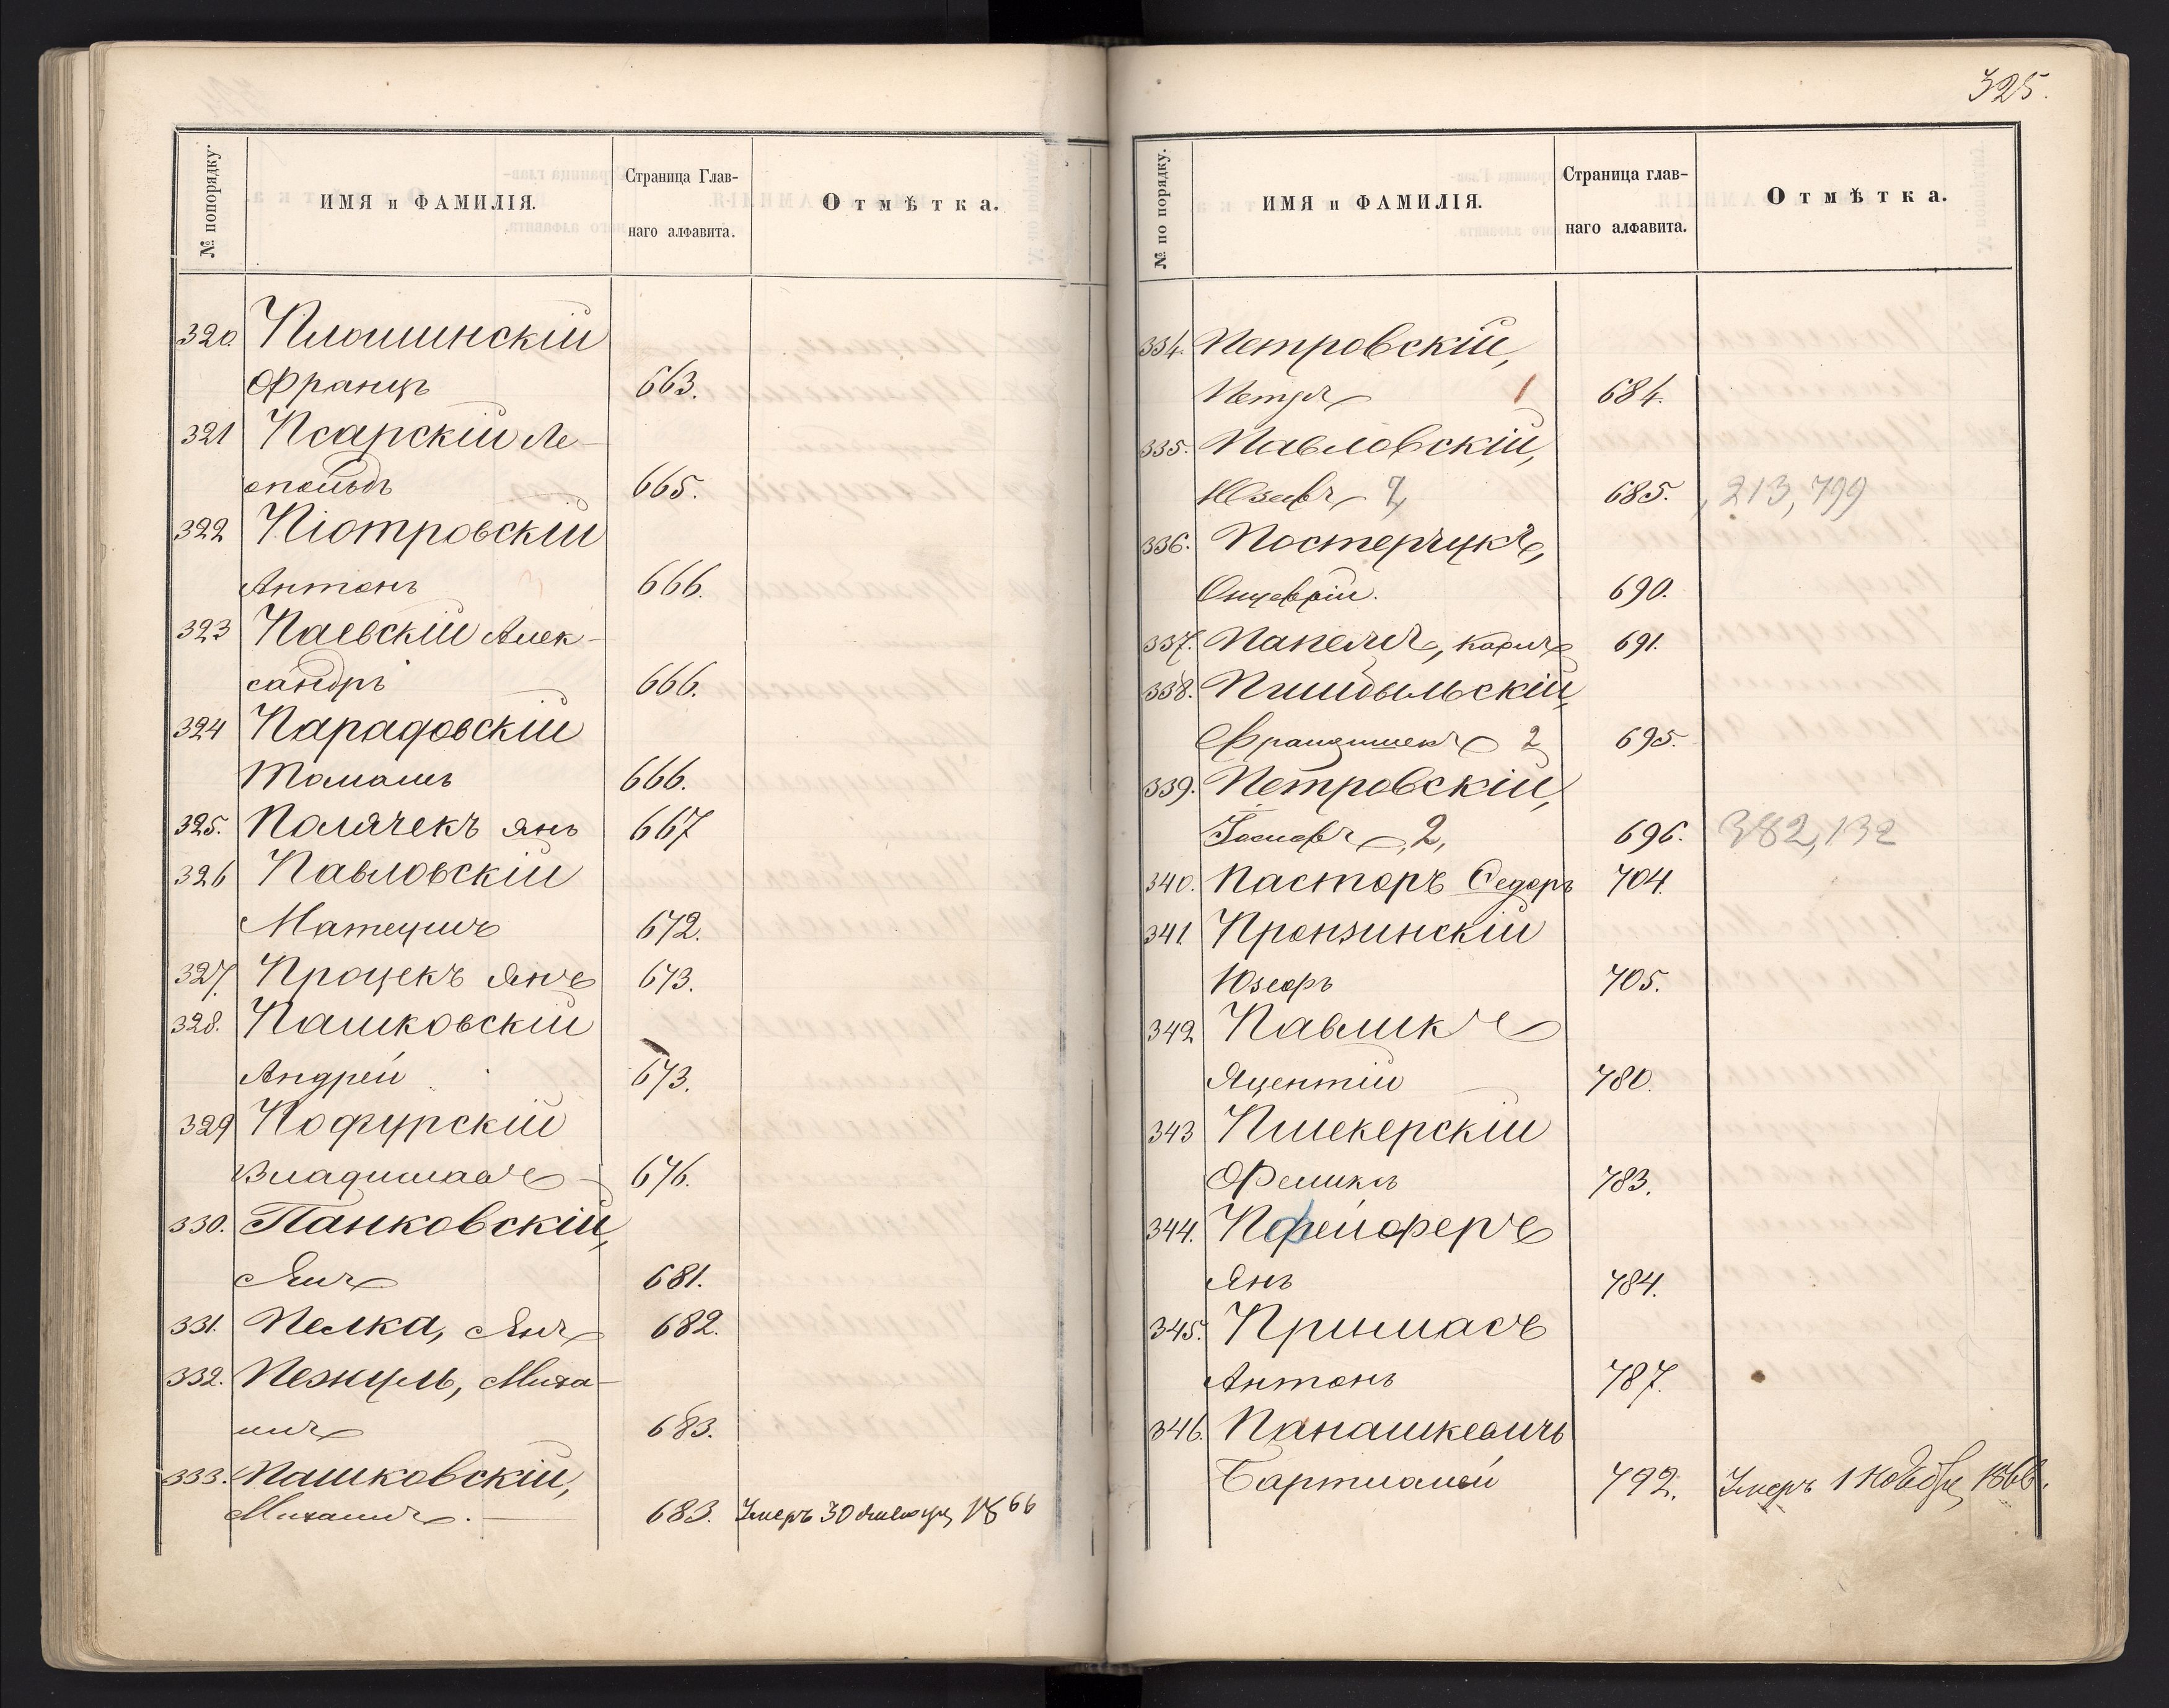 325.
№ попорядку.
ИМЯ и ФАМИЛІЯ.
Страница Глав-
наго алфавита.
Отмѣтка.
320. Плошинскій
Францъ 663.
321 Псарскій Ле-
опольдъ 665.
322 Піотровскій
Антонъ 666.
323 Паевскій Алек-
сандръ 666.
324 Парадовскій
Томашъ 666.
325. Полячекъ Янъ 667
326 Павловскій
Матеушъ 672.
327. Процекъ Янъ 673.
328. Пашковскій
Андрей 673.
329 Пофурскій
Владиславъ 676.
330. Панковскій,
Янъ 681.
331. Пелка, Янъ 682.
332. Пежуль, Миха-
илъ 683.
333. Пашковскій,
Михаилъ. 683. Умеръ 30 1866
№ по порядку.
ИМЯ и ФАМИЛІЯ.
Страница глав-
наго алфавита.
Отмѣтка.
334. Петровскій,
Петръ 684.
335. Павловскій,
Юзефъ 2, 685. 213, 799
336. Постерчукъ,
690.
337. Папелъ, Карлъ 691.
338. Пшидыльскій,
Францишекъ 2 695.
339. Петровскій,
Іосифъ, 2, 696. 382, 132
340. Пасторъ Федоръ 704.
341. Пронзинскій
Юзефъ 705.
342 Павликъ
Яцентій 780.
343 Пшекерскій
Феликсъ 783.
344. Пфейферъ
Янъ 784.
345. Примасъ
Антонъ 787.
346. Панашкевичъ
Бартломей 792. Умеръ 1 Ноября 1866.